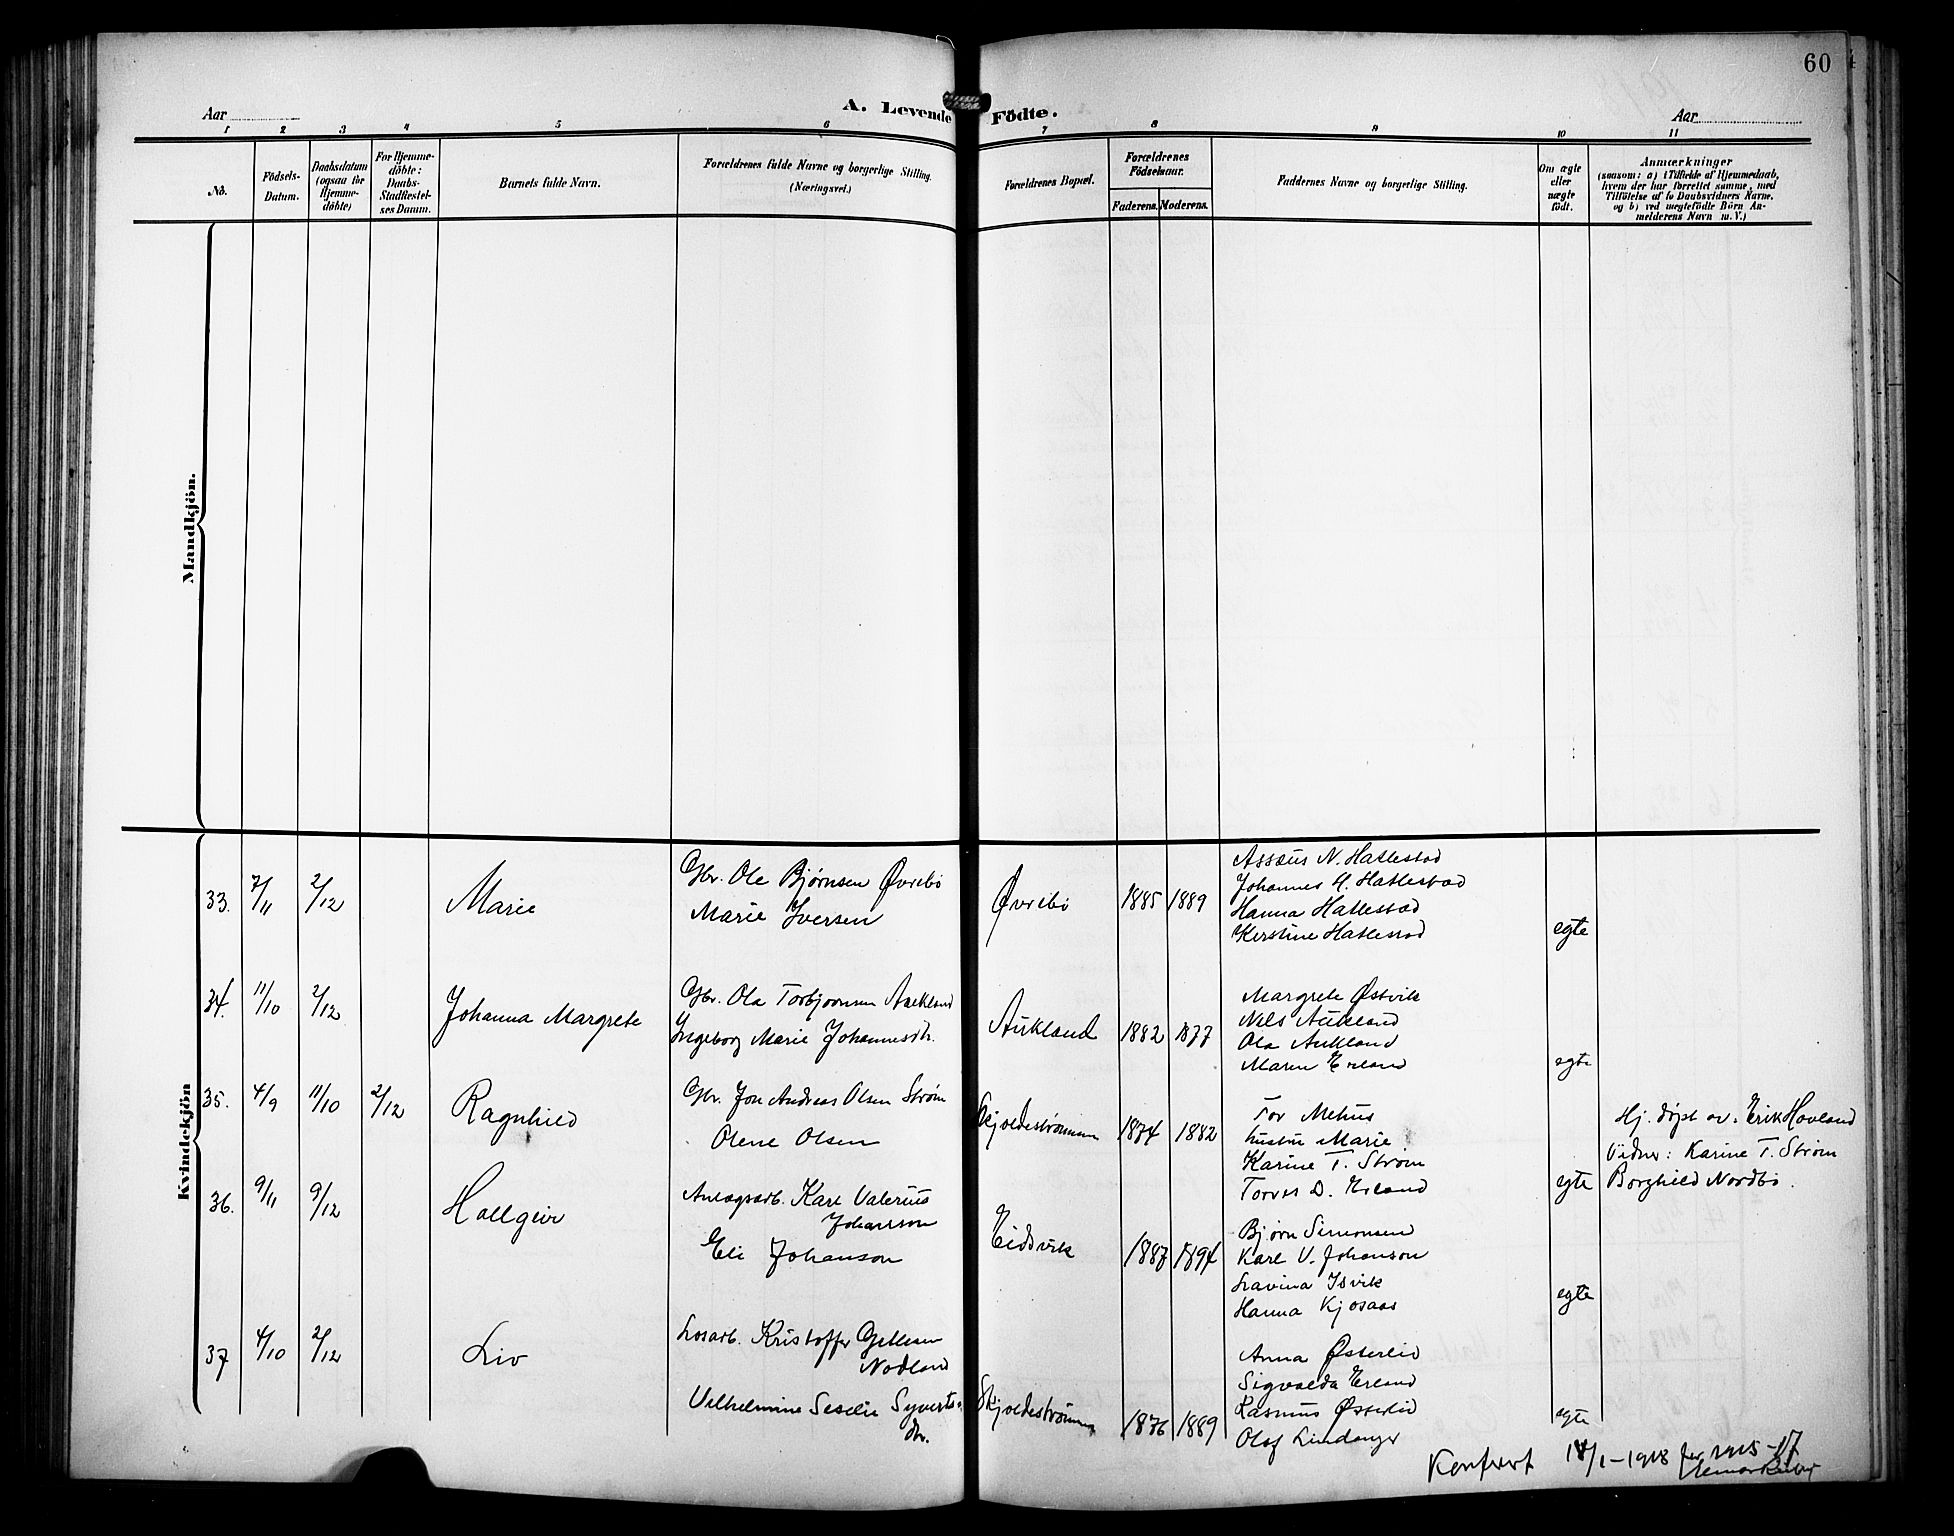 60
Aar
A. Levende Födte.
Aar
1 2 3 4 5 6 7 8 9 10 11
No.
Födsels-
Datum.
Daabsdatum
(ogsaa for
Hjemme-
döbte)
For Hjemme-
döbte:
Daabs-
Stadfæstel-
ses Datum.
Barnets fulde Navn.
Forældrenes fulde Navne og borgerlige Stilling.
(Næringsvei.)
Forældrenes Bopæl.
Forældrenes
Födselsaar.
Faderens. Moderens.
Faddernes Navne og borgerlige Stilling.
Om ægte
eller
uægte
födt.
Anmærkninger
(saasom: a) i Tilfælde af Hjemmedaab,
hvem der har forrettet samme, med
Tilföielse af to Daabsvidners Navne,
og b) ved uægtefödte Börn An-
melderens Navn m. V.)
Mandkjön.
Kvindekjön
33. 7/11 2/12 Marie
Gbr. Ole Bjørnsen Øvrebö
Marie Iversen
Øvrebö 1885 1889
Assæus N. Hatlestad
Johannes H. Hatlestad
Hanna Hatlestad
Kerstine Hatlestad
egte
34. 11/10 2/12 Johanna Margrete
Gbr. Ola Torbjørnsen Aukland
Ingeborg Marie Johannesdtr.
Aukland 1882 1877
Margrete Østvik
Nils Aukland
Ola Aukland
Maren Erland
egte
35. 4/9 11/10 2/12 Ragnhild
Gbr. Jon Andreas Olsen Strøm
Olene Olsen
Skjoldestrømmen 1874 1882
Tor Mehus
hustru Marie
Karine T. Strøm
Torves D. Erland
egte
Hj. døpt av: Erik Hovland
Vidner: Karine T. Strøm
Borghild Nordbö.
36. 9/11 9/12 Hallgeir
Anlægsarb. Karl Valerius
Johansson
Eli Johanson
Eidsvik 1887 1894
Bjørn Simonsen
Karl V. Johanson
Lavina Isvik
Hanna Kjosaas
egte
37 4/10 2/12 Liv
Losarb. Kristoffer Gjettesen
Nodland
Vilhelmine Sesilie Syverts-
dtr.
Skjoldestrømmen 1876 1889
Anna Østerlid
Sigvalda Erland
Rasmus Østerlid
Olaf Lindanger
egte
Konferert 14/1-1918 for 1915-17